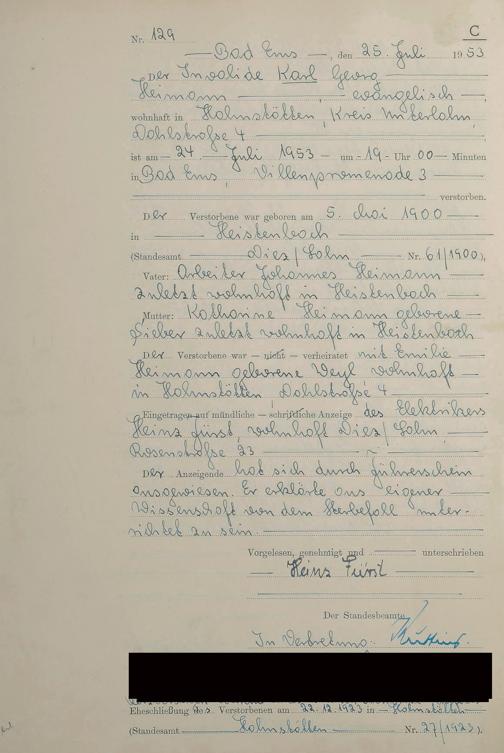 C
Nr. 129
Bad Ems, den 25. Juli 1953
Der Invalide Karl Georg
Heimann, evangelisch,
wohnhaft in Hahnstätten, Kreis Unterlahn,
Dahlstraße 4
ist am 24. Juli 1953 um 19 Uhr 00 Minuten
in Bad Ems, Villenpromenade 3
verstorben.
Der Verstorbene war geboren am 5. Mai 1900
in Heistenbach
(Standesamt Diez/Lahn Nr. 61/1900),
Vater: Arbeiter Johannes Heimann
zuletzt wohnhaft in Heistenbach
Mutter: Katharine Heimann geborene
Sieber zuletzt wohnhaft in Heistenbach
Der Verstorbene war – nicht – verheiratet mit Emilie
Heimann geborene Weyl wohnhaft
in Hahnstätten Dahlstraße 4
Eingetragen auf mündliche – schriftliche Anzeige des Elektrikers
Heinz Fürst, wohnhaft Diez/Lahn
Rosenstraße 23
Der Anzeigende hat sich durch Führerschein
ausgewiesen. Er erklärte aus eigener
Wissenschaft von dem Sterbefall unter-
richtet zu sein.
Vorgelesen, genehmigt und unterschrieben
Heinz Fürst
Der Standesbeamte
In Vertretung:
Eheschließung des Verstorbenen am 22.12.1923 in Hahnstätten
(Standesamt Hahnstätten Nr. 27/1923).